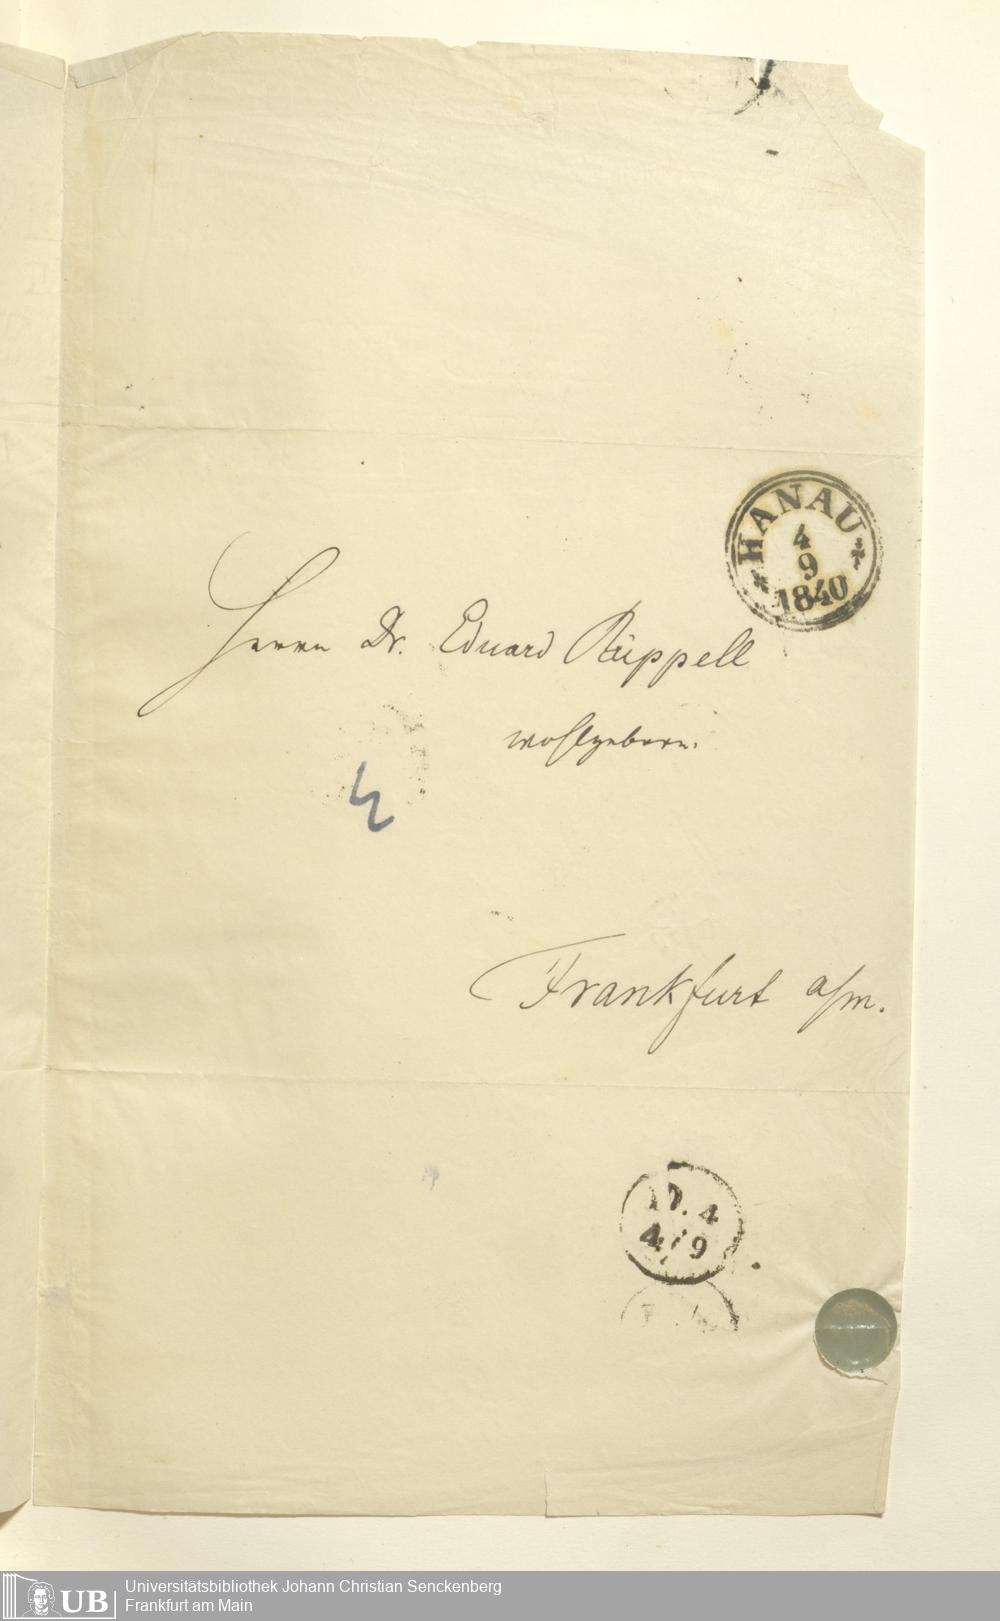 * HANAU *
4
9
1840
Herrn Dr. Eduard Rüppell
wohlgeboren.
Frankfurt a/m.
4/9
UB
Universitätsbibliothek Johann Christian Senckenberg
Frankfurt am Main